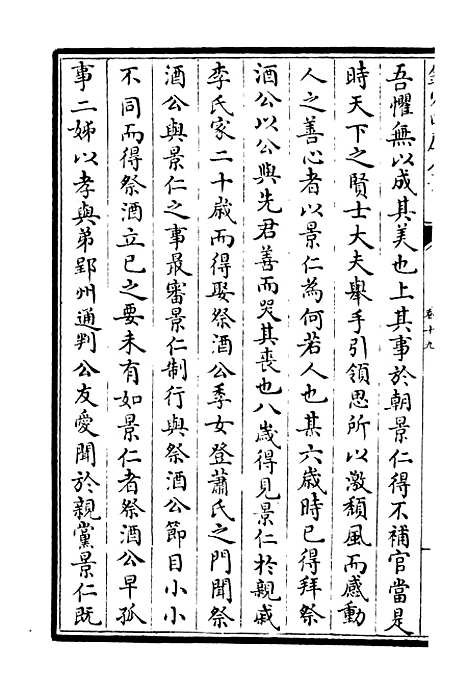 卷十九
吾懼無以成其美也上其事於朝景仁得不補官當是
時天下之賢士大夫舉手引領思所以激頹風而感動
人之善心者以景仁為何若人也某六歲時已得拜祭
酒公以公與先君善而哭其喪也八歲得見景仁於親戚
李氏家二十歲而得娶祭酒公季女登蕭氏之門聞祭
酒公與景仁之事最審景仁制行與祭酒公節目小小
不同而得祭酒立已之要未有如景仁者祭酒公早孤
事二姊以孝與弟郢州通判公友愛聞於親黨景仁既